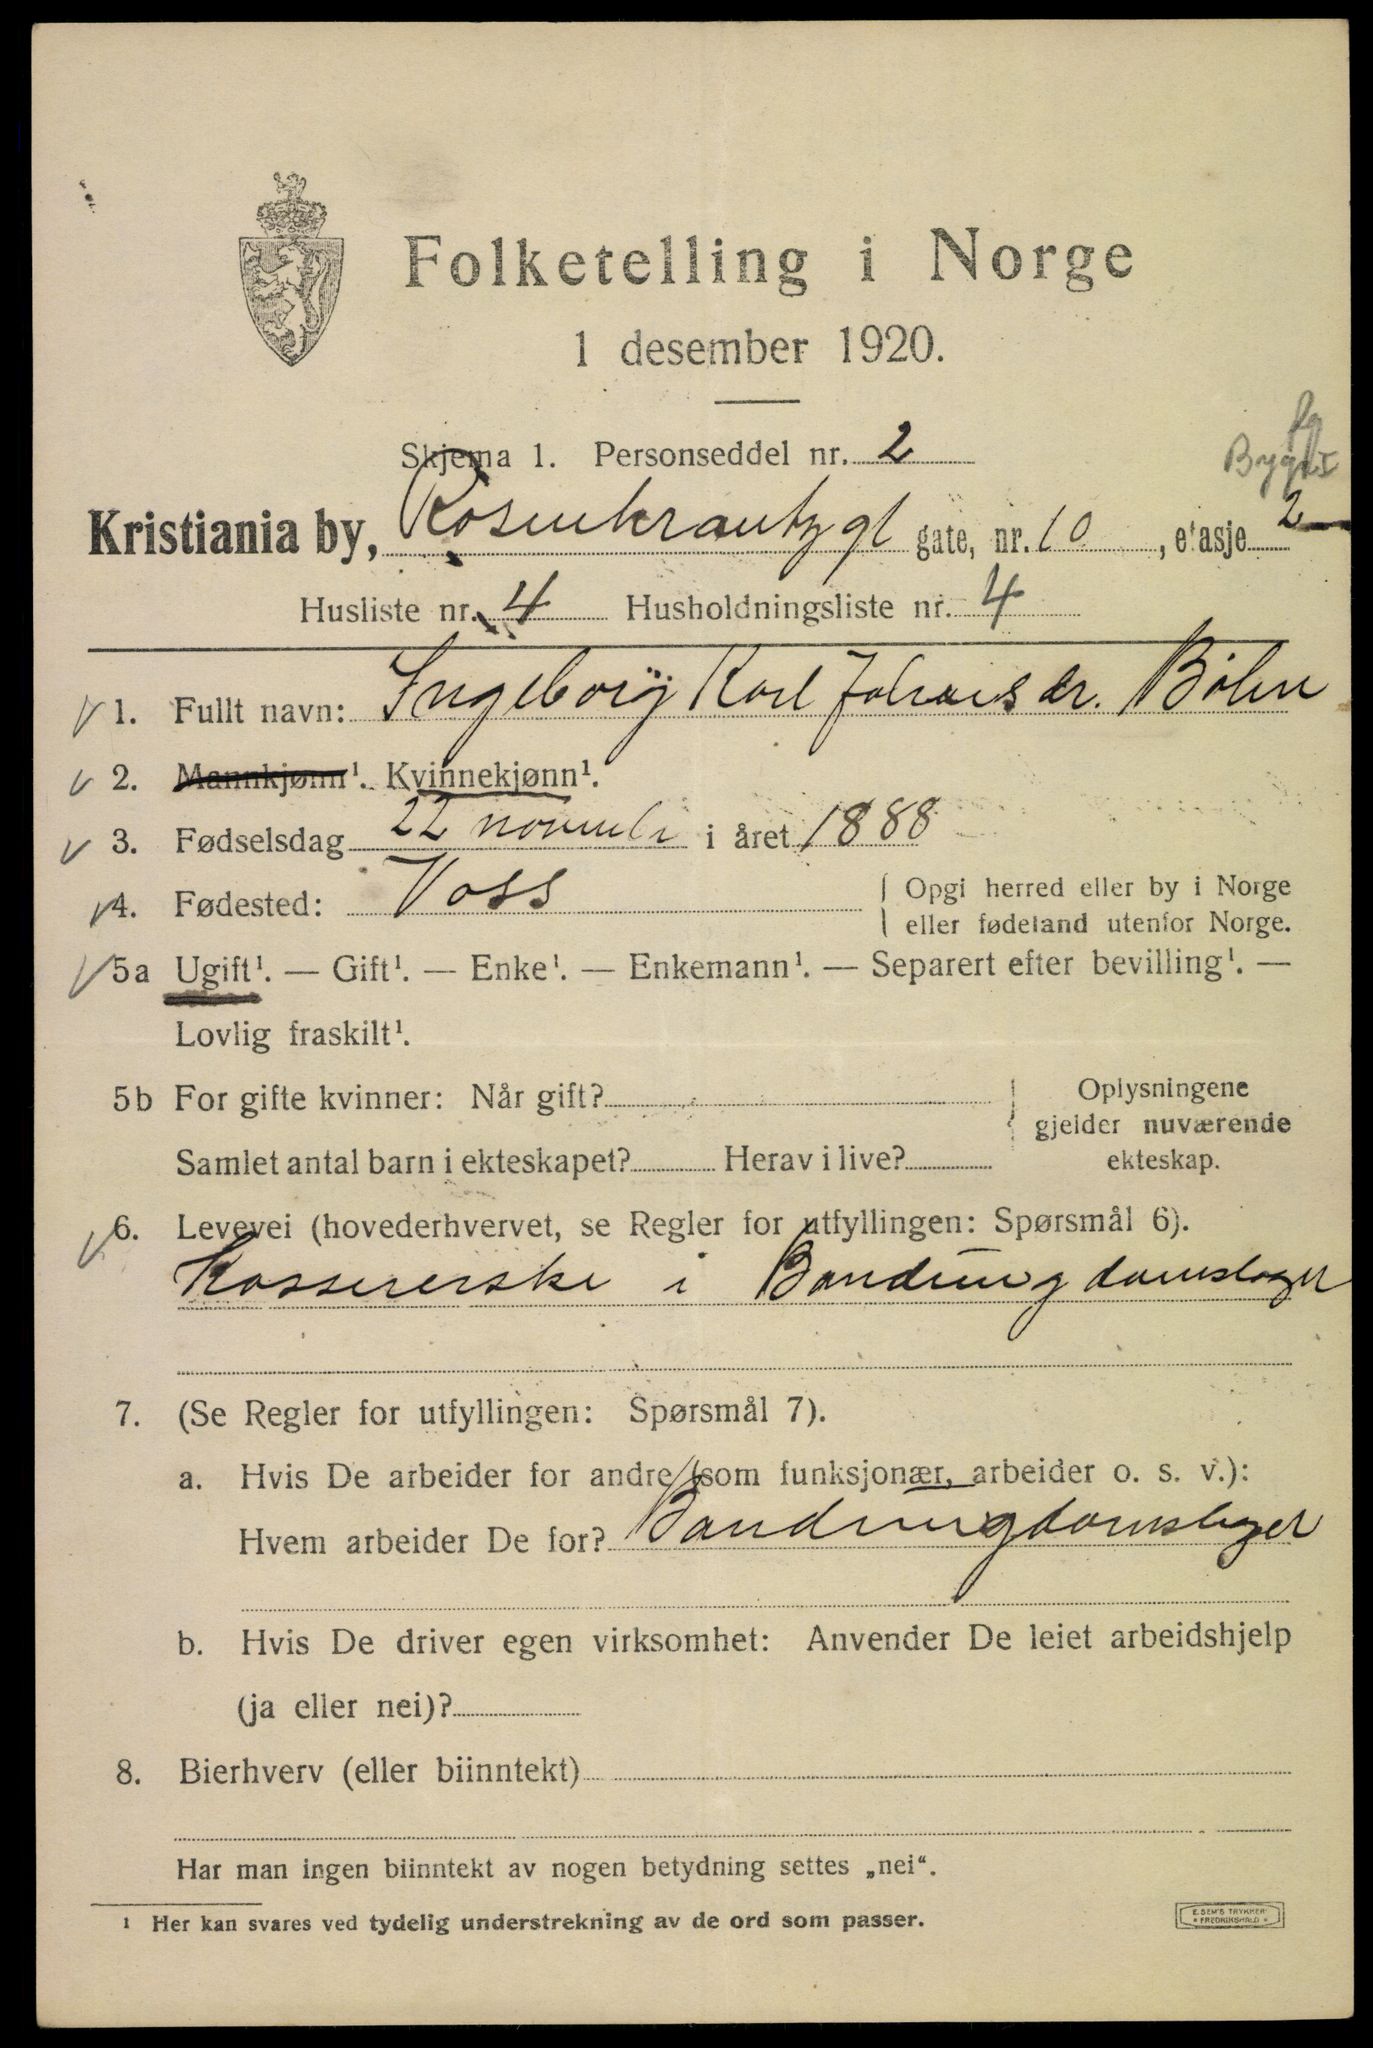 Folketelling i Norge
1 desember 1920.
Skjema 1. Personseddel nr. 2
Kristiania by, Rosenkrantzgt gate, nr. 10, etasje 2
Husliste nr. 4 Husholdningsliste nr. 4
1. Fullt navn: Ingeborg Karl Johans dr.
2. Mannkjønn¹. Kvinnekjønn¹.
3. Fødselsdag 22 november i året 1888
4. Fødested: Voss { Opgi herred eller by i Norge
eller fødeland utenfor Norge.
5a Ugift¹. — Gift¹. — Enke¹. — Enkemann¹. — Separert efter bevilling¹. —
Lovlig fraskilt¹.
5b For gifte kvinner: Når gift? Oplysningene
gjelder nuværende
Samlet antal barn i ekteskapet? Herav i live? ekteskap.
6. Levevei (hovederhvervet, se Regler for utfyllingen: Spørsmål 6).
Kassererske i
7. (Se Regler for utfyllingen: Spørsmål 7).
a. Hvis De arbeider for andre (som funksjonær, arbeider o. s. v.):
Hvem arbeider De for?
b. Hvis De driver egen virksomhet: Anvender De leiet arbeidshjelp
(ja eller nei)?
8. Bierhverv (eller biinntekt)
Har man ingen biinntekt av nogen betydning settes „nei“.
¹ Her kan svares ved tydelig understrekning av de ord som passer.
E. SEM'S TRYKKERI
* FREDRIKSHALD *